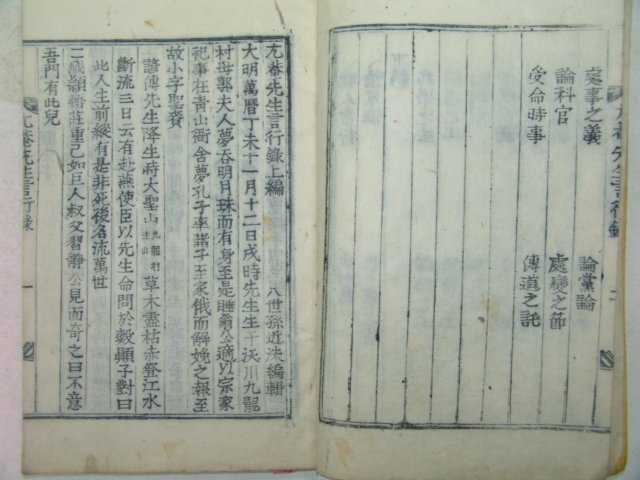 尤菴先生言行錄
處事之義 論黨論
論科官 處變之節
受命時事 傳道之託
尤菴先生言行錄上編 八世孫近洙編輯
大明萬曆丁未十一月十二日戌時先生生于沃川九龍
村母郭夫人夢吞明月珠而有身至是睡翁公適以宗家
祀事在靑山衙舍夢孔子率諸子至家俄而解娩之報至
故小字聖賚
諺傳先生降生時大聖山九龍村主山草木盡枯赤登江水
斷流三日云有赴燕使臣以先生命問於穀顚子對曰
此人生前縱有是非死後名流萬世
二歲頴悟莊重已如巨人叔父習靜公見而奇之曰不意
吾門有此兒
尤菴先生言行錄 一